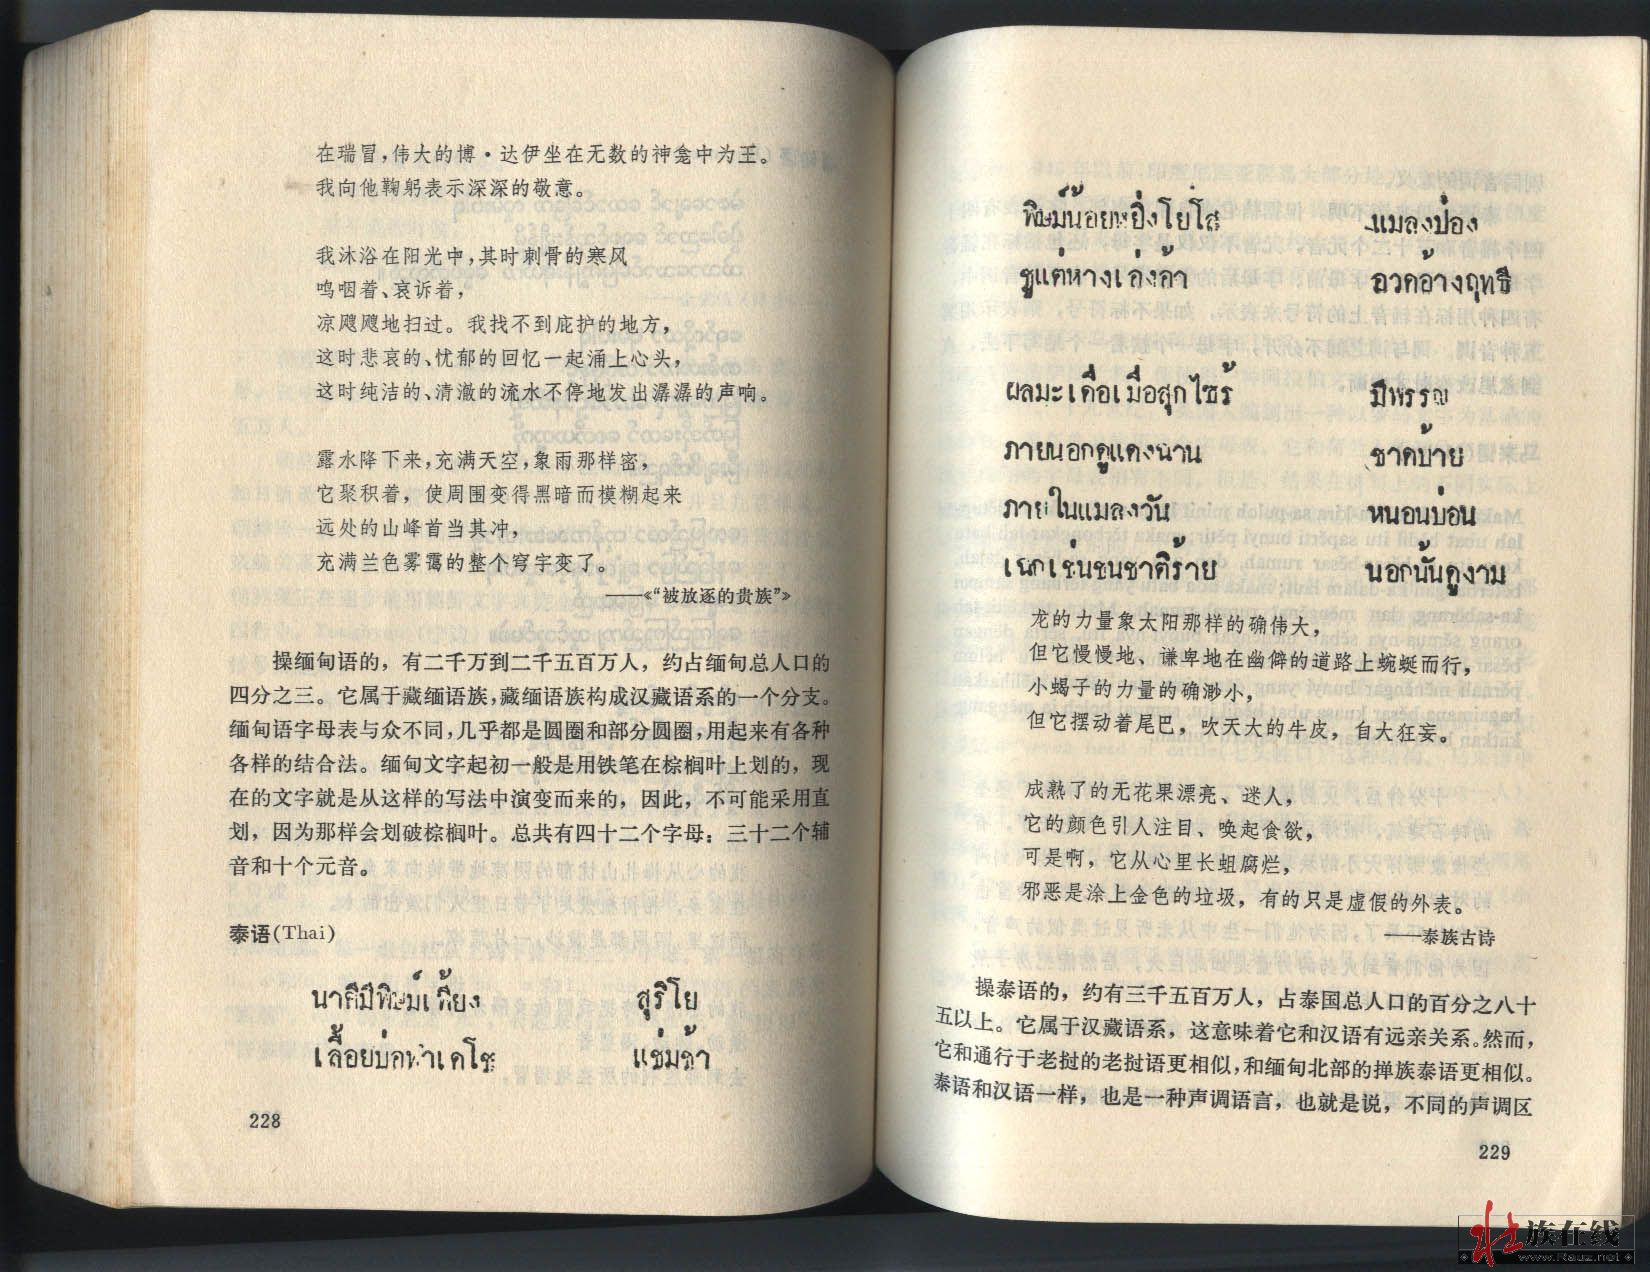 在瑞冒，伟大的博·达伊坐在无数的神龛中为王。
我向他鞠躬表示深深的敬意。
我沐浴在阳光中，其时刺骨的寒风
呜咽着、哀诉着，
凉飕飕地扫过。我找不到庇护的地方，
这时悲哀的、忧郁的回忆一起涌上心头，
这时纯洁的、清澈的流水不停地发出潺潺的声响。
露水降下来，充满天空，象雨那样密，
它聚积着，使周围变得黑暗而模糊起来
远处的山峰首当其冲，
充满兰色雾霭的整个穹宇变了。
——《“被放逐的贵族”》
操缅甸语的，有二千万到二千五百万人，约占缅甸总人口的
四分之三。它属于藏缅语族，藏缅语族构成汉藏语系的一个分支。
缅甸语字母表与众不同，几乎都是圆圈和部分圆圈，用起来有各种
各样的结合法。缅甸文字起初一般是用铁笔在棕榈叶上划的，现
在的文字就是从这样的写法中演变而来的，因此，不可能采用直
划，因为那样会划破棕榈叶。总共有四十二个字母：三十二个辅
音和十个元音。
泰语(Thai)
นาคีมีพิษม์เพี้ยง สุริโย
เลื้อยบ่ทำเดโช แช่มช้า
228
พิษม์น้อยหยิ่งโยโส แมลงป่อง
ชูแต่หางเล่งล้า อวดอ้างฤทธี
ผลมะเดื่อเมื่อสุกไซร้ มีพรรณ
ภายนอกดูแดงฉาน ชาดบ้าย
ภายในแมลงวัน หนอนบ่อน
เฉกเช่นชนชาติร้าย นอกนั้นดูงาม
龙的力量象太阳那样的确伟大，
但它慢慢地、谦卑地在幽僻的道路上蜿蜒而行，
小蝎子的力量的确渺小，
但它摆动着尾巴，吹天大的牛皮，自大狂妄。
成熟了的无花果漂亮、迷人，
它的颜色引人注目、唤起食欲，
可是啊，它从心里长蛆腐烂，
邪恶是涂上金色的垃圾，有的只是虚假的外表。
——泰族古诗
操泰语的，约有三千五百万人，占泰国总人口的百分之八十
五以上。它属于汉藏语系，这意味着它和汉语有远亲关系。然而，
它和通行于老挝的老挝语更相似，和缅甸北部的掸族泰语更相似。
泰语和汉语一样，也是一种声调语言，也就是说，不同的声调区
229
壮族在线
www.Rauz.net